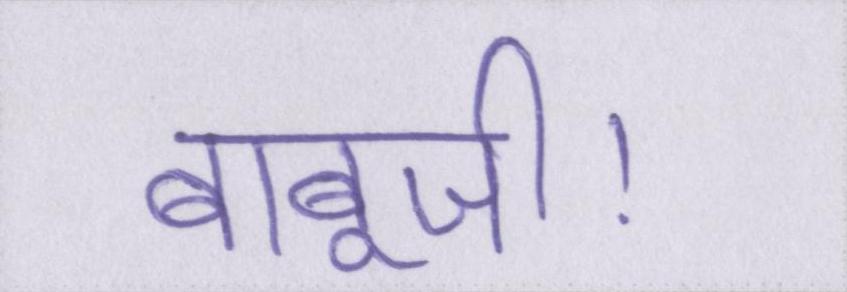 बाबूजी!